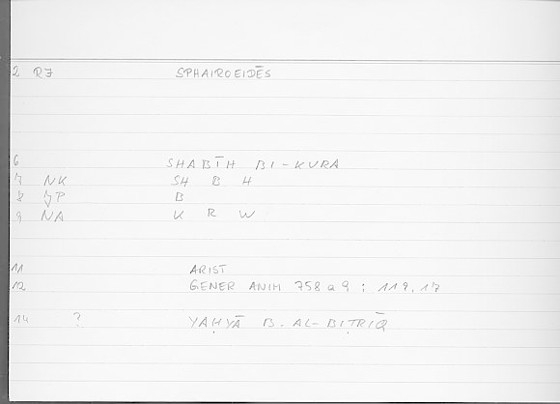 2 RJ SPHAIROEIDĒS
6 SHABĪH BI-KURA
7 NK SH B H
8 JP B
9 NA K R W
11 ARIST
12 GENER ANIM 758 a 9 ; 119,17
14 ? YAḤYĀ B. AL-BIṬRĪQ